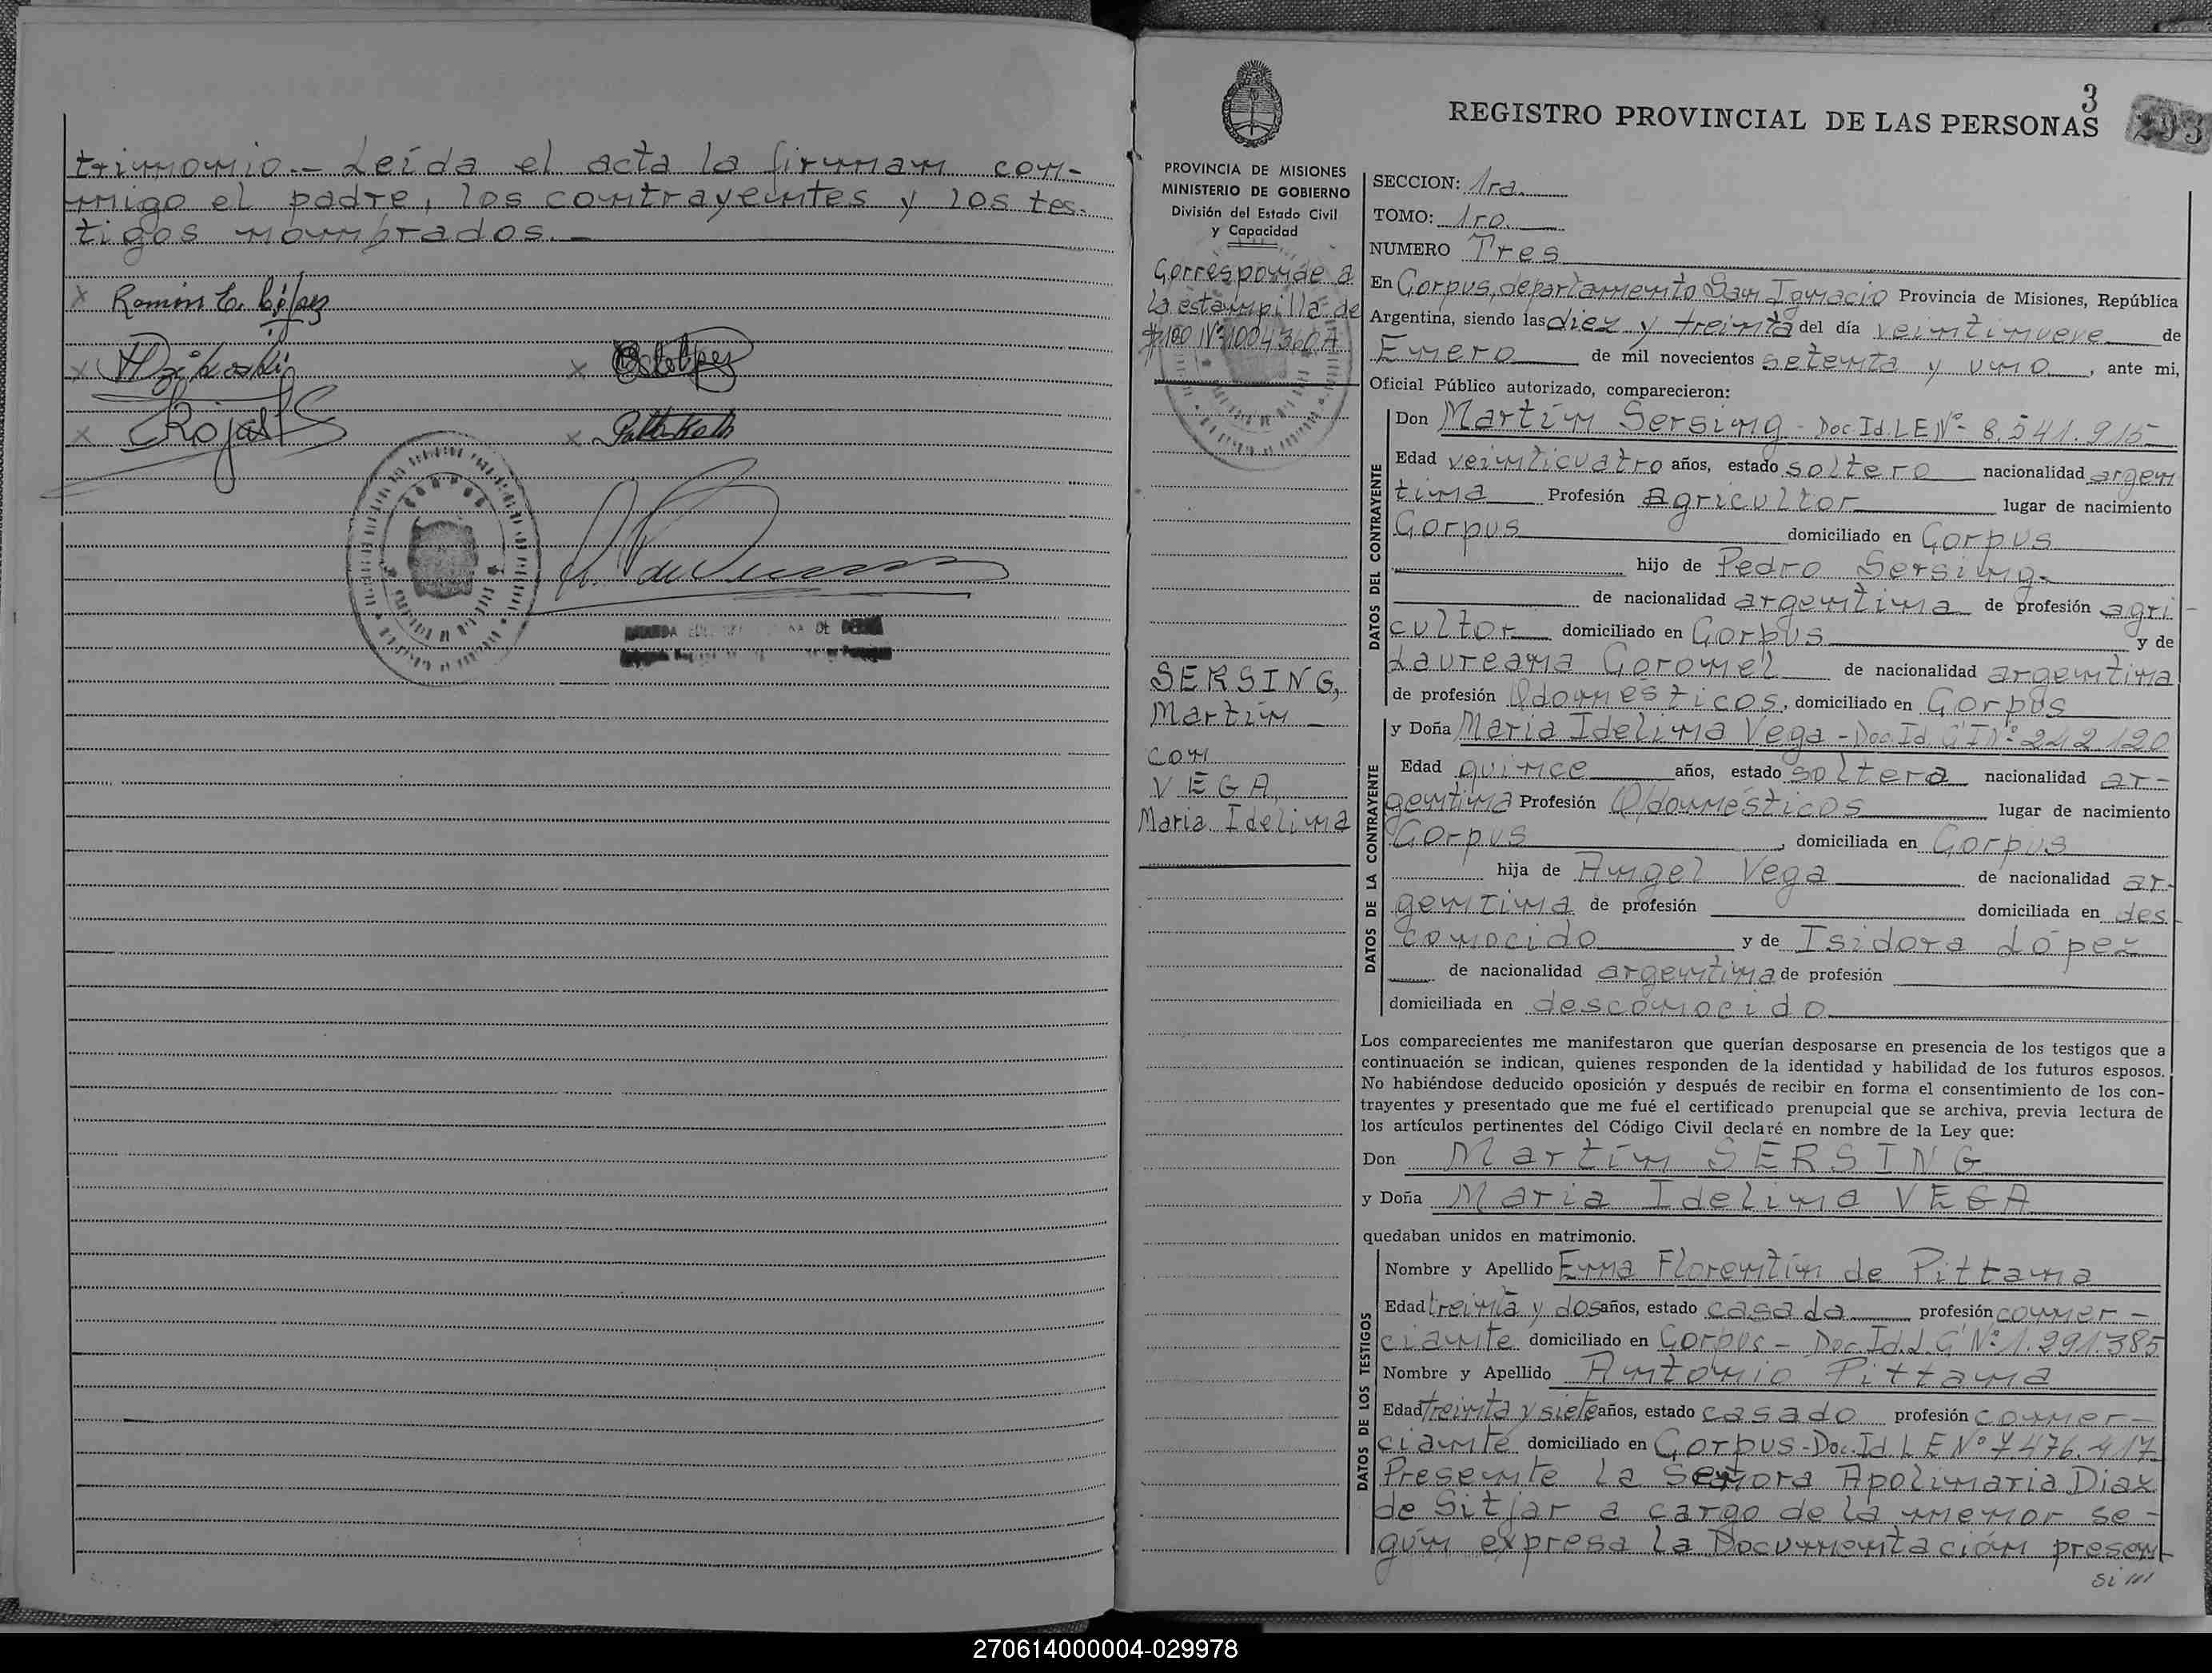 trimonio.- Leída el acta la firman con-
migo el padre, los contrayentes y los tes-
tigos nombrados.-
x Ramón
x
x Rojas
x
x
CORPUS
3
REGISTRO PROVINCIAL DE LAS PERSONAS
PROVINCIA DE MISIONES
MINISTERIO DE GOBIERNO
División del Estado Civil
y Capacidad
Corresponde a
la estampilla de
$100 Nº 10043607
SERSING,
Martín
con
VEGA,
Maria Idelina
SECCION: 1ra.
TOMO: 1ro.
NUMERO Tres
En Corpus, departamento San Ignacio Provincia de Misiones, República
Argentina, siendo las diez y treinta del día veintinueve de
Enero de mil novecientos setenta y uno, ante mi,
Oficial Público autorizado, comparecieron:
DATOS DEL CONTRAYENTE
Don Martín Sersing - Doc. Id. L E Nº 8.541.915
Edad veinticuatro años, estado soltero nacionalidad argen
tina Profesión agricultor lugar de nacimiento
Corpus domiciliado en Corpus
hijo de Pedro Sersing-
de nacionalidad argentina de profesión agri-
cultor domiciliado en Corpus y de
Laureana Coronel de nacionalidad argentina
de profesión Q/domésticos, domiciliado en Corpus
DATOS DE LA CONTRAYENTE
y Doña Maria Idelina Vega - Doc. Id C I Nº 242.120
Edad quince años, estado soltera nacionalidad ar-
gentina Profesión Q/domésticos lugar de nacimiento
Corpus, domiciliada en Corpus
hija de Angel Vega de nacionalidad ar-
gentina de profesión domiciliada en des-
conocido y de Isidora López
de nacionalidad argentina de profesión
domiciliada en desconocido
Los comparecientes me manifestaron que querían desposarse en presencia de los testigos que a
continuación se indican, quienes responden de la identidad y habilidad de los futuros esposos.
No habiéndose deducido oposición y después de recibir en forma el consentimiento de los con-
trayentes y presentado que me fué el certificado prenupcial que se archiva, previa lectura de
los artículos pertinentes del Código Civil declaré en nombre de la Ley que:
Don Martín SERSING
y Doña Maria Idelina VEGA
quedaban unidos en matrimonio.
DATOS DE LOS TESTIGOS
Nombre y Apellido Ema Florentín de Pittana
Edad treinta y dos años, estado casada profesión comer-
ciante domiciliado en Corpus - Doc. Id. L. C Nº 1.291.385
Nombre y Apellido Antonio Pittana
Edad treinta y siete años, estado casado profesión comer-
ciante domiciliado en Corpus - Doc. Id. L E Nº 7.476.417
Presente la Señora Apolinaria Diaz
de Sitjar a cargo de la menor se-
gún expresa la Documentación presen-
si ///
270614000004-029978